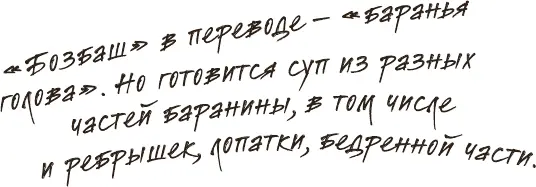 «Бозбаш» в переводе – «баранья
голова». Но готовится суп из разных
частей баранины, в том числе
и ребрышек, лопатки, бедренной части.